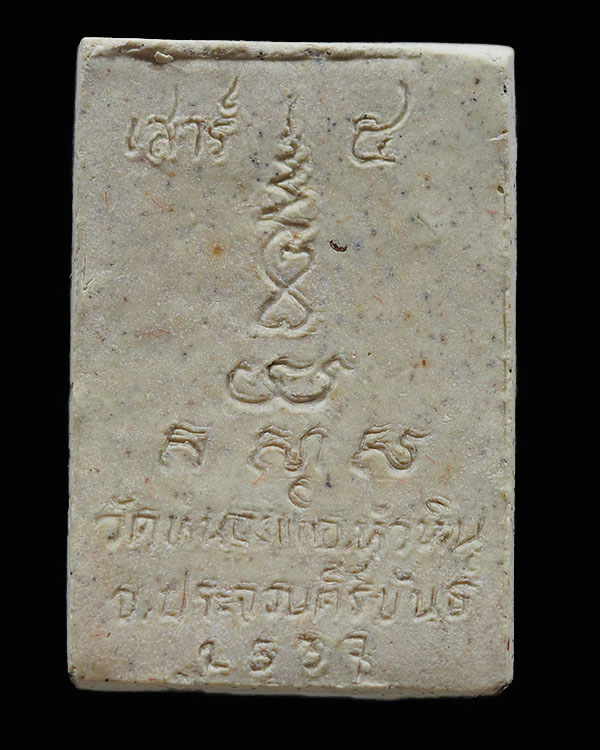 เสาร์ ๕
วัดหนองแก อ.หัวหิน
จ.ประจวบคีรีขันธ์
๒๕๓๗